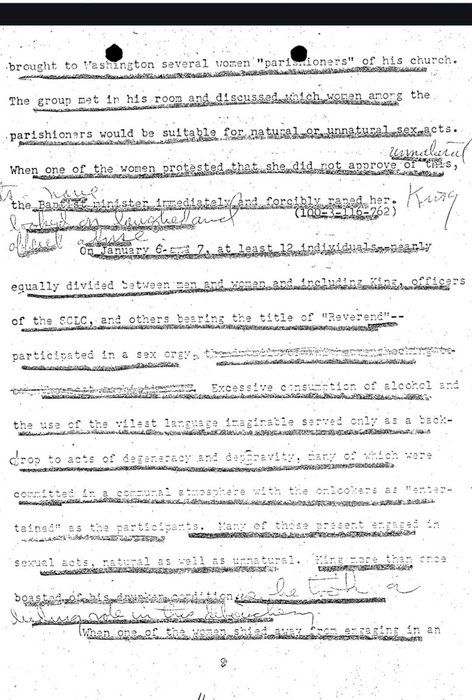 brought to Washington several women "parishioners" of his church.
The group met in his room and discussed which women among the
parishioners would be suitable for natural or unnatural sex acts.
unnatural
When one of the women protested that she did not approve of this,
the Baptist minister immediately and forcibly raped her. King
looked on laughed and (100-3-116-762)
On January 6 and 7, at least 12 individuals--nearly
equally divided between men and women and including King, officers
of the SCLC, and others bearing the title of "Reverend"--
participated in a sex orgy,
Excessive consumption of alcohol and
the use of the vilest language imaginable served only as a back-
drop to acts of degeneracy and depravity, many of which were
committed in a communal atmosphere with the onlookers as "enter-
tained" as the participants. Many of those present engaged in
sexual acts, natural as well as unnatural. King more than once
boasted of his drunken condition as he took a
leading role in this
When one of the women shied away from engaging in an
9